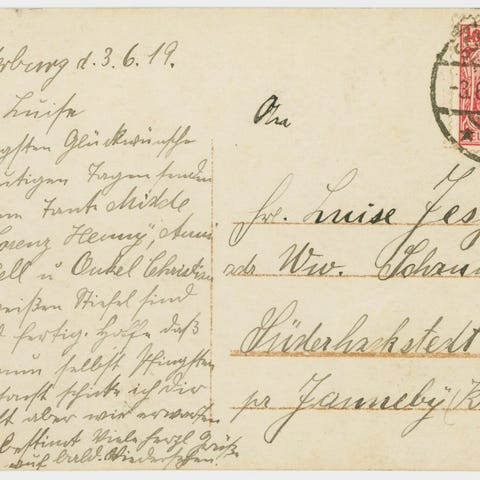 rburg d. 3. 6. 19.
Luise
gsten Glückwünsche
utigen Tagen senden
Tante
orenz Henny, Anni
ell u Onkel Christian
eißen Stiefel sind
fertig. Hoffe daß
nun selbst Pfingsten
schicke ich Dir
aber wir erwarten
bestimt Viele herzl Grüße
auf bald. Wiedersehen!
An
Frl. Luise Jes
Ww.
Süderhackstedt
pr Janneby (K